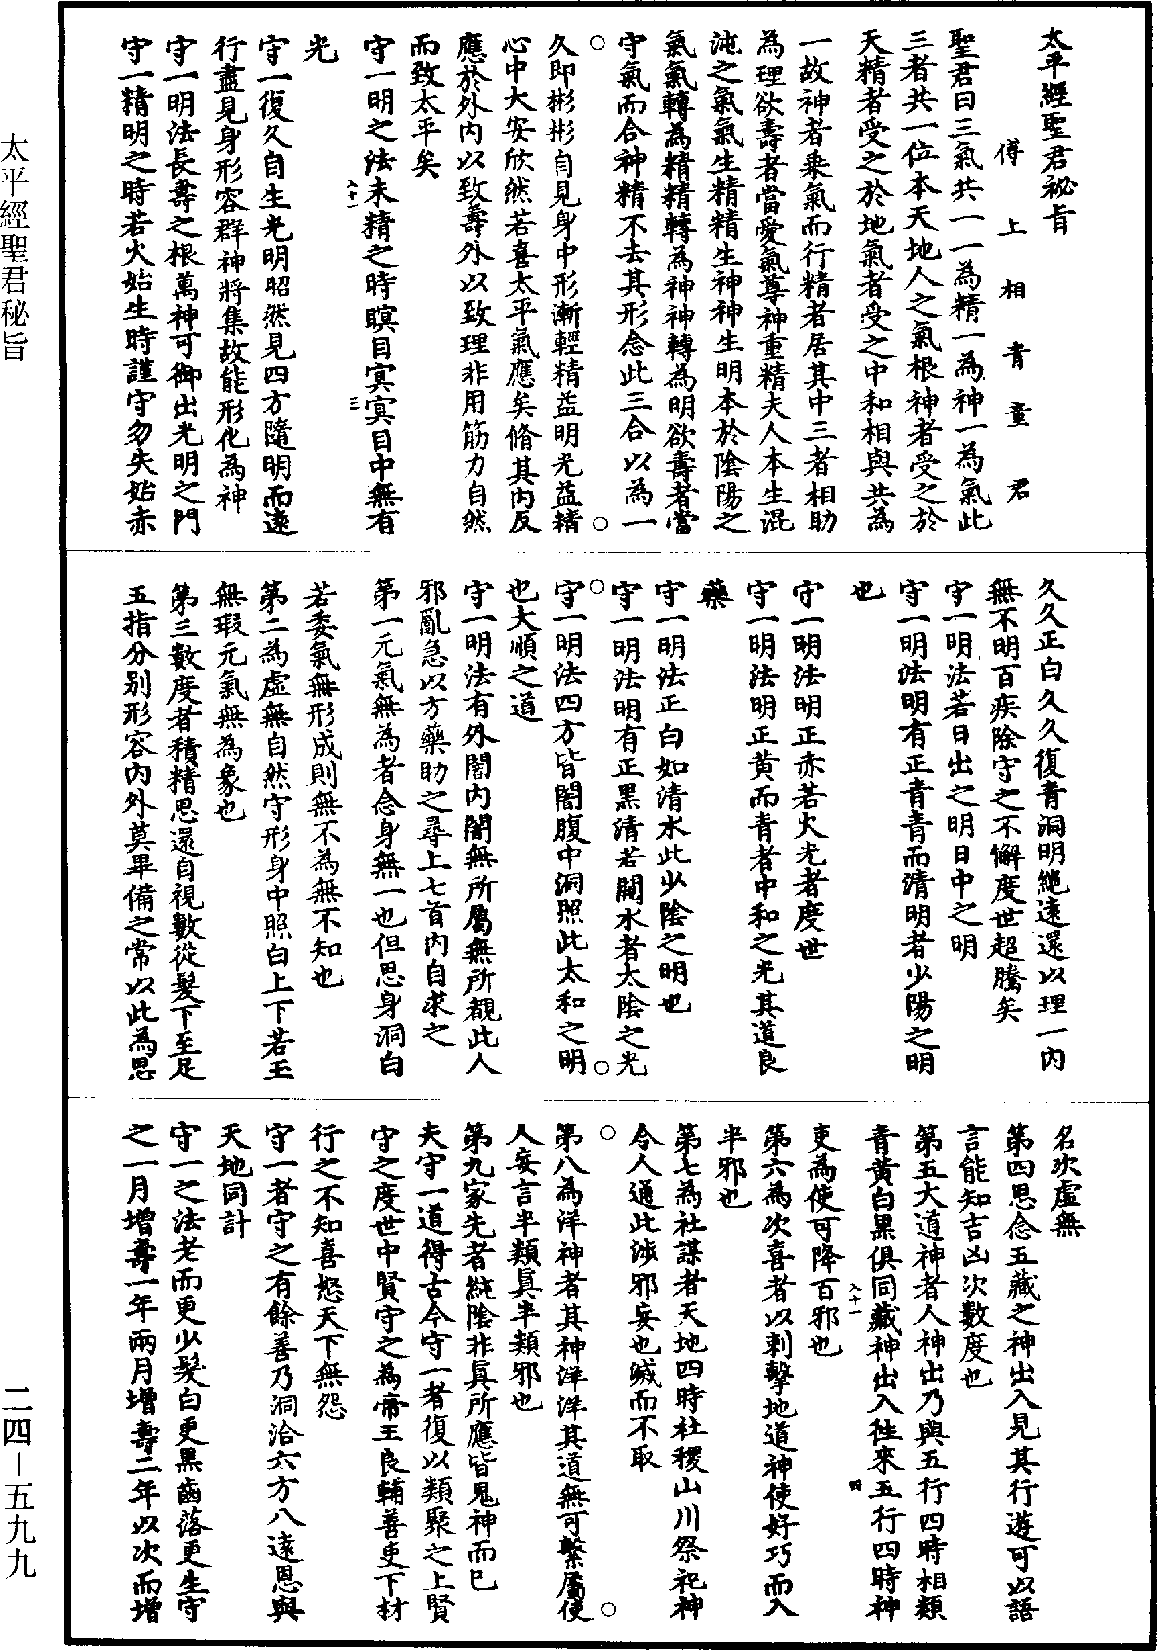 太平經聖君祕旨
傅上相青童君
聖君曰三氣共一一為精一為神一為氣此
三者共一位本天地人之氣根神者受之於
天精者受之於地氣者受之中和相與共為
一故神者乘氣而行精者居其中三者相助
為理欲壽者當愛氣尊神重精夫人本生混
沌之氣氣生精精生神神生明本於陰陽之
氣氣轉為精精轉為神神轉為明欲壽者當
守氣而合神精不去其形念此三合以為一
久即彬彬自見身中形漸輕精益明光益精
心中大安欣然若喜太平氣應矣脩其內反
應於外內以致壽外以致理非用筋力自然
而致太平矣
守一明之法未精之時瞑目冥冥目中無有
光
守一復久自生光明昭然見四方隨明而遠
行盡見身形容群神將集故能形化為神
守一明法長壽之根萬神可御出光明之門
守一精明之時若火始生時謹守勿失始赤
久久正白久久復青洞明絕遠還以理一內
無不明百疾除守之不懈度世超騰矣
守一明法若日出之明日中之明
守一明法明有正青青而清明者少陽之明
也
守一明法明正赤若火光者度世
守一明法明正黃而青者中和之光其道良
藥
守一明法正白如清水此少陰之明也
守一明法明有正黑清若闚水者太陰之光
守一明法四方皆闇腹中洞照此太和之明
也大順之道
守一明法有外闇內闇無所屬無所覩此人
邪亂急以方藥助之尋上七首內自求之
第一元氣無為者念身無一也但思身洞白
若委氣無形成則無不為無不知也
第二為虛無自然守形身中照白上下若玉
無瑕元氣無為象也
第三數度者積精思還自視數從髮下至足
五指分別形容內外莫畢備之常以此為思
名次虛無
第四思念五藏之神出入見其行遊可以語
言能知吉凶次數度也
第五大道神者人神出乃與五行四時相類
青黃白黑俱同藏神出入往來五行四時神
吏為使可降百邪也
第六為次喜者以刺擊地道神使好巧而入
半邪也
第七為社謀者天地四時社稷山川祭祀神
令人通此涉邪妄也緘而不取
第八為洋神者其神洋洋其道無可繫屬使
人妄言半類真半類邪也
第九家先者純陰非真所應皆鬼神而已
夫守一道得古今守一者復以類聚之上賢
守之度世中賢守之為帝王良輔善吏下材
行之不知喜怒天下無怨
守一者守之有餘善乃洞洽六方八遠恩與
天地同計
守一之法老而更少髮白更黑齒落更生守
之一月增壽一年兩月增壽二年以次而增
太平經聖君秘旨
二四－五九九